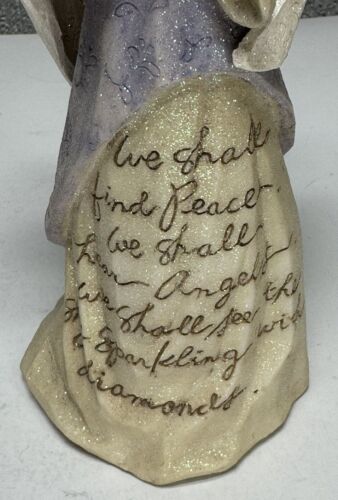 We shall
find Peace.
We shall
hear Angels.
We shall see the
sparkling wid
diamonds.